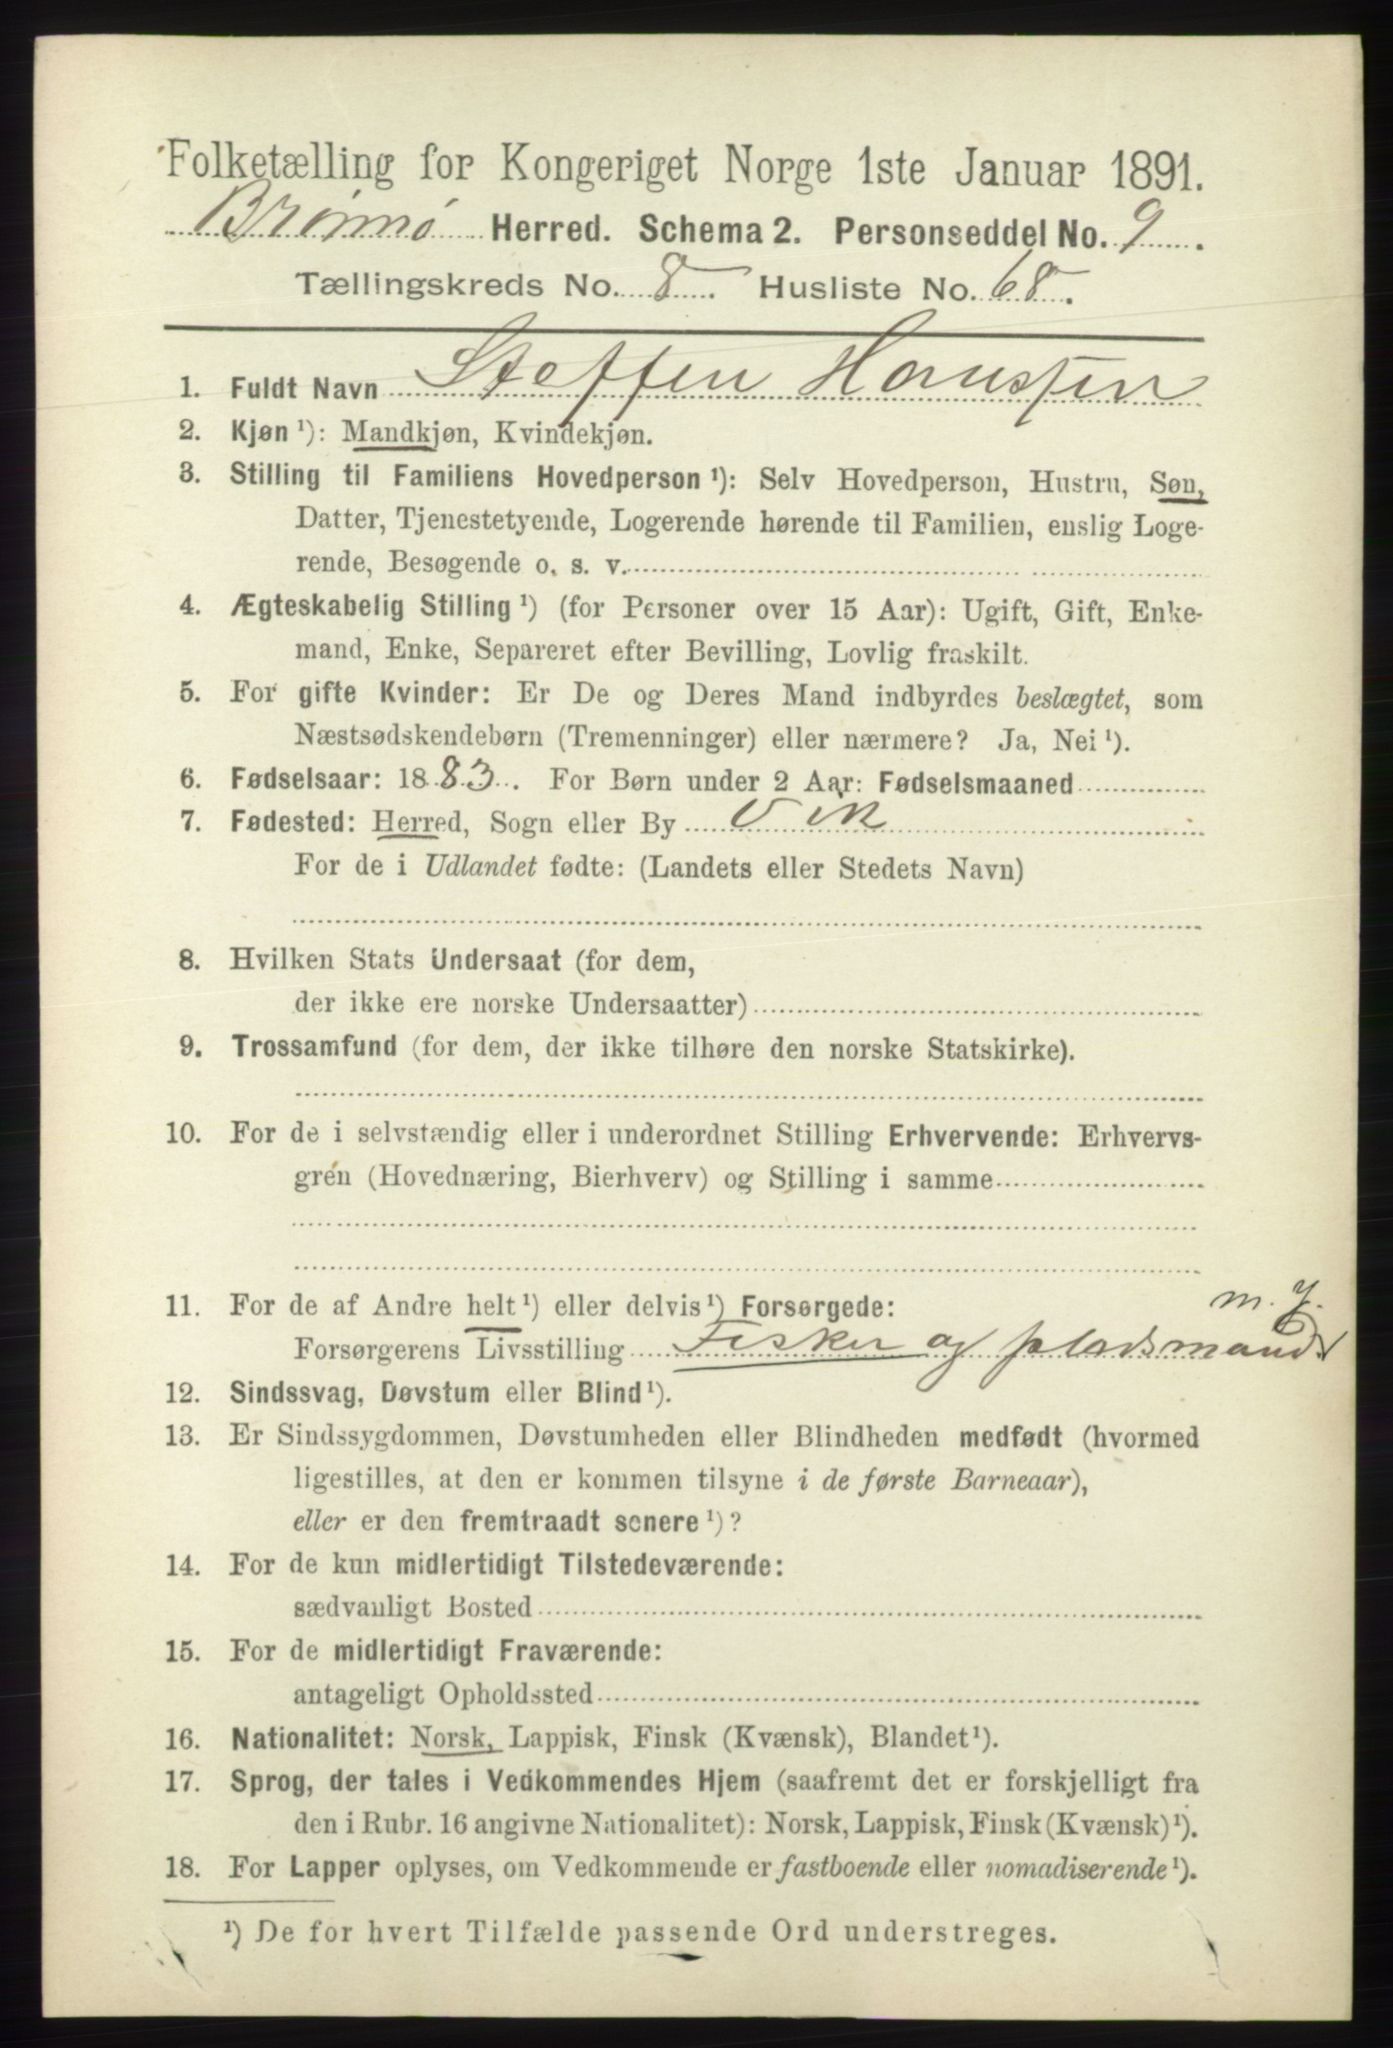 Folketælling for Kongeriget Norge 1ste Januar 1891.
Brønnø Herred. Schema 2. Personseddel No. 9.
Tællingskreds No. 8. Husliste No. 68.
1. Fuldt Navn Steffen Hansen
2. Kjøn ¹): Mandkjøn, Kvindekjøn.
3. Stilling til Familiens Hovedperson ¹): Selv Hovedperson, Hustru, Søn,
Datter, Tjenestetyende, Logerende hørende til Familien, enslig Loge-
rende, Besøgende o. s. v.
4. Ægteskabelig Stilling ¹) (for Personer over 15 Aar): Ugift, Gift, Enke-
mand, Enke, Separeret efter Bevilling, Lovlig fraskilt.
5. For gifte Kvinder: Er De og Deres Mand indbyrdes beslægtet, som
Næstsødskendebørn (Tremenninger) eller nærmere? Ja, Nei ¹).
6. Fødselsaar: 1883. For Børn under 2 Aar: Fødselsmaaned
7. Fødested: Herred, Sogn eller By Vik
For de i Udlandet fødte: (Landets eller Stedets Navn)
8. Hvilken Stats Undersaat (for dem,
der ikke ere norske Undersaatter)
9. Trossamfund (for dem, der ikke tilhøre den norske Statskirke).
10. For de i selvstændig eller i underordnet Stilling Erhvervende: Erhvervs-
gren (Hovednæring, Bierhverv) og Stilling i samme
11. For de af Andre helt ¹) eller delvis ¹) Forsørgede: m. J.
Forsørgerens Livsstilling Fisker og pladsmand
12. Sindssvag, Døvstum eller Blind ¹).
13. Er Sindssygdommen, Døvstumheden eller Blindheden medfødt (hvormed
ligestilles, at den er kommen tilsyne i de første Barneaar),
eller er den fremtraadt senere ¹)?
14. For de kun midlertidigt Tilstedeværende:
sædvanligt Bosted
15. For de midlertidigt Fraværende:
antageligt Opholdssted
16. Nationalitet: Norsk, Lappisk, Finsk (Kvænsk), Blandet ¹).
17. Sprog, der tales i Vedkommendes Hjem (saafremt det er forskjelligt fra
den i Rubr. 16 angivne Nationalitet): Norsk, Lappisk, Finsk (Kvænsk) ¹).
18. For Lapper oplyses, om Vedkommende er fastboende eller nomadiserende ¹).
¹) De for hvert Tilfælde passende Ord understreges.